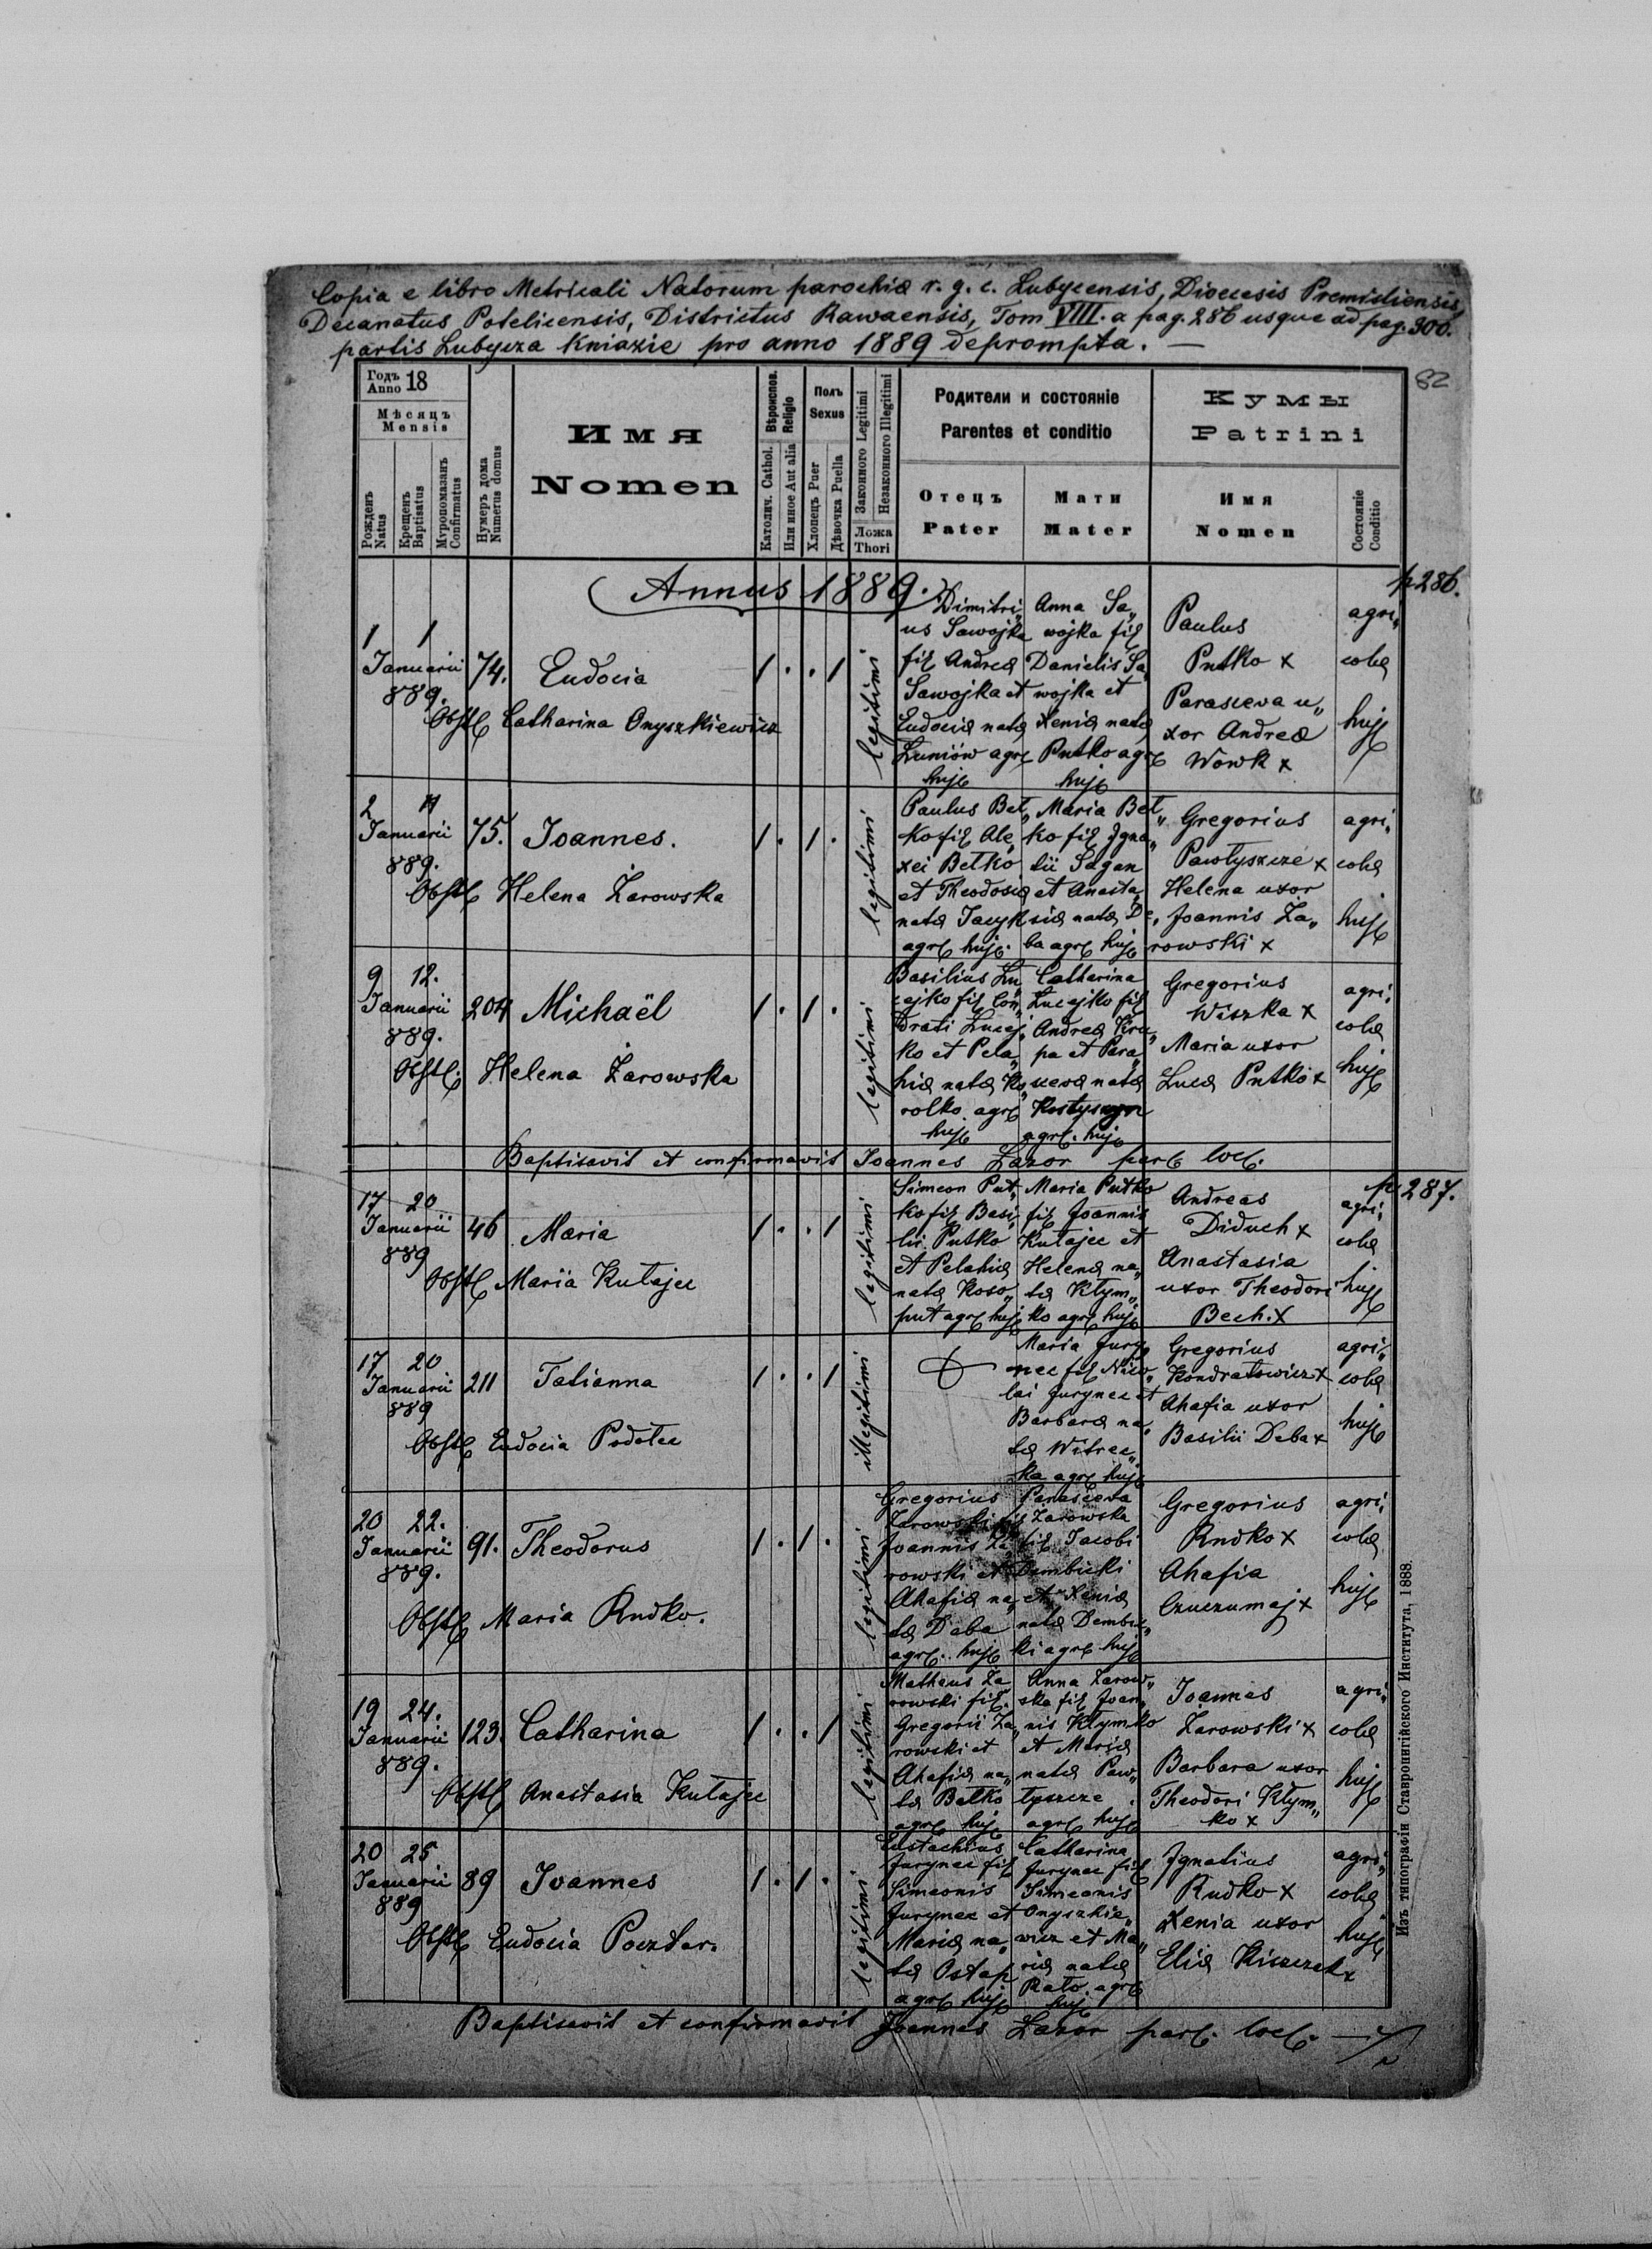 Copia e libro Metricali Natorum parochiæ r. g. c. Lubycensis, Dioecesis Premisliensis,
Decanatus Potelicensis, Districtus Rawaensis, Tom VIII. a pag. 286 usque ad pag. 300.
partis Lubycza Kniazie pro anno 1889 deprompta. —
82
Годъ
Anno 18
Мѣсяцъ
Mensis
Рожденъ
Natus
Крещенъ
Baptisatus
Мѵропомазанъ
Confirmatus
Нумеръ дома
Numerus domus
Имя
Nomen
Вѣроиспов.
Religio
Католич. Cathol.
Или иное Aut alia
Полъ
Sexus
Хлопецъ Puer
Дѣвочка Puella
Законного Legitimi
Незаконного Illegitimi
Ложа
Thori
Родители и состояніе
Parentes et conditio
Отецъ
Pater
Мати
Mater
Кумы
Patrini
Имя
Nomen
Состояніе
Conditio
Annus 1889.
p 286.
1 1
Januarii
889.
74.
Eudocia
Obst. Catharina Onyszkiewicz
1 . . 1
legitimi
Dimitri„
us Sawojka
fil Andreæ
Sawojka et
Eudociæ natæ
Luniów agr
huj
Anna Sa„
wojka fil
Danielis Sa
wojka et
Xeniæ natæ
Putko agr
huj
Paulus
Putko x
Parasceva u„
xor Andreæ
Wowk x
agri„
colæ
huj
2
Januarii
889.
75.
Joannes.
Obst Helena Żarowska
1 . 1 .
legitimi
Paulus Bet„
ko fil Ale„
xei Betko
et Theodosiæ
natæ Jacyk
agr huj.
Maria Bet„
ko fil Igna„
tii Sagan
et Anasta„
siæ natæ De„
ba agr huj
Gregorius
Pawłyszcze x
Helena uxor
Joannis Ża„
rowski x
agri„
colæ
huj
9 12.
Januarii
889.
204
Michaël
Obst. Helena Żarowska
1 . 1 .
legitimi
Basilius Lu„
cejko fil Con„
drati Lucej„
ko et Pela„
hiæ natæ Ko„
rolko. agr
huj
Catharina
Lucejko fil
Andreæ Kru„
pa et Para„
scevæ natæ
agr. huj
Gregorius
Wiszka x
Maria uxor
Lucæ Putko x
agri„
colæ
huj
Baptisavit et confirmavit Joannes Lazor par loc.
p 287.
17 20
Januarii
889
46
Maria
Obst Maria Kutajec
1 . . 1
legitimi
Simeon Put„
ko fil Basi„
lii Putko
et Pelahiæ
natæ Koso„
put agr huj
Maria Putko
fil Joannis
Kutajec et
Helenæ na„
tæ Kłym„
ko agr huj
Andreas
Diduch x
Anastasia
uxor Theodori
Bech. x
agri„
colæ
huj
17 20
Januarii
889
211
Tatianna
Obst Eudocia Podolec
1 . . 1
illegitimi
Maria Jury„
nec fil Nico„
lai Jurynec et
Barbaræ na„
tæ Witrec„
ka agr huj
Gregorius
Kondratowicz x
Ahafia uxor
Basilii Deba x
agri„
colæ
huj
20 22.
Januarii
889.
91.
Theodorus
Obst Maria Rudko.
1 . 1 .
legitimi
Gregorius
Żarowski fil
Joannis Ża„
rowski et
Ahafiæ na„
tæ Deba
agr. huj
Parasceva
Żarowska
fil Jacobi
Dembicki
et Xeniæ
natæ Dembic„
ki agr huj
Gregorius
Rudko x
Ahafia
Czuczumaj x
agri„
colæ
huj
19 24.
Januarii
889.
123.
Catharina
Obst Anastasia Kutajec
1 . . 1
legitimi
Matheus Ża„
rowski fil.
Gregorii Ża„
rowski et
Ahafiæ na„
tæ Betko
agr huj
Anna Żarow„
ska fil Joan„
nis Kłymko
et Mariæ
natæ Paw„
łyszcze
agr huj
Joannes
Żarowski x
Barbara uxor
Theodori Kłym„
ko x
agri„
colæ
huj
20 25
Januarii
889
89
Joannes
Obst Eudocia Pocztar.
1 . 1 .
legitimi
Eustachius
Jurynec fil
Simeonis
Jurynec et
Mariæ na„
tæ Ostap
agr huj
Catharina
Jurynec fil
Simeonis
Onyszkie„
wicz et Ma„
riæ natæ
Rato. agr
huj
Ignatius
Rudko x
Xenia uxor
Eliæ Kiszczak x
agri„
colæ
huj
Baptisavit et confirmavit Joannes Lazor par. loc. —
Изъ типографіи Ставропигійского Института, 1888.